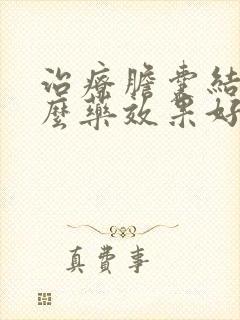 治療膽囊結
麼藥效果好
真費事